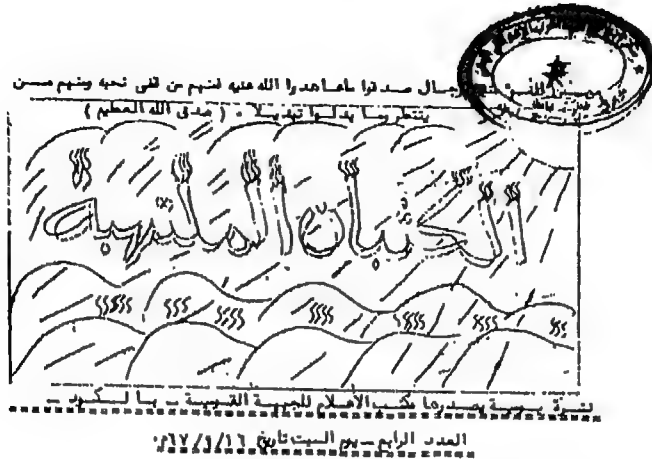 من المؤمنين رجال صدقوا ما عاهدوا الله عليه فمنهم من قضى نحبه ومنهم مــن
ينتظر وما بدلوا تبديلا . ( صدق الله العظيم )
الكثبان الملتهبة
نشرة يومية يصدرها مكتب الأعلام للجبهة القومية ــ بالــكــود ــ
العدد الرابع ــ يوم السبت تاريخ ٦٧/٩/١٦م٠